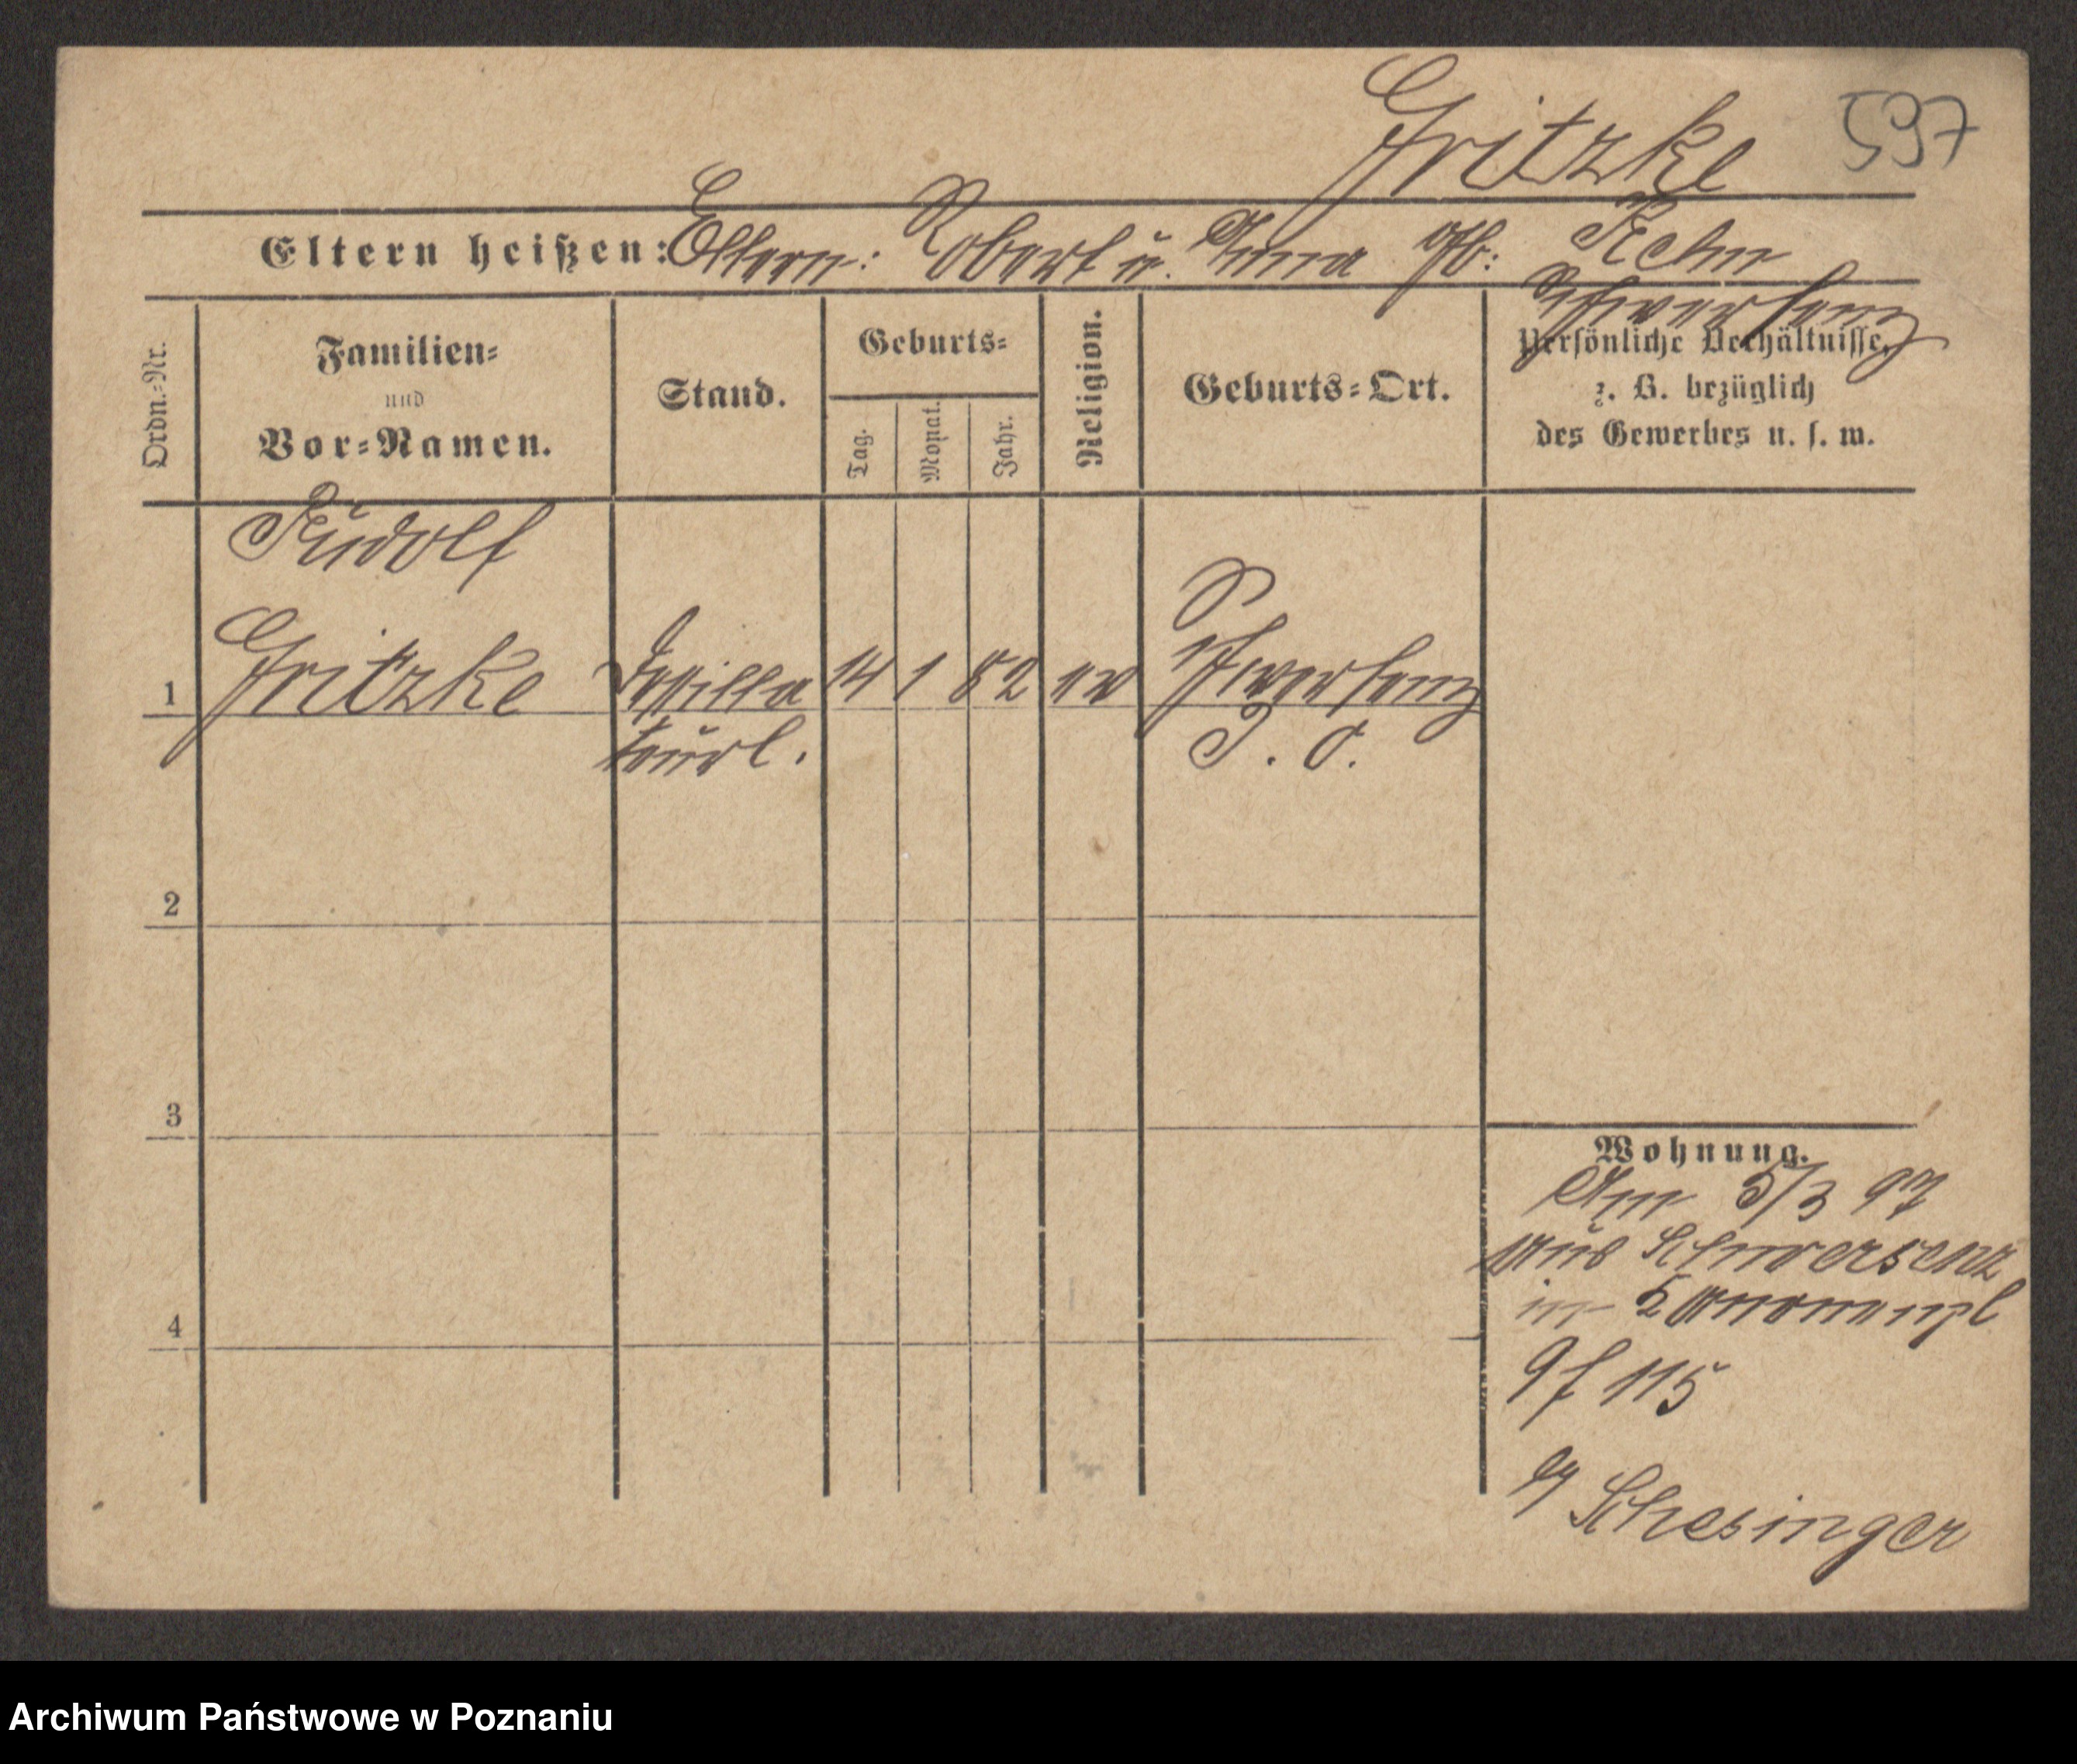 Gritzke 597
Eltern heißen: Eltern: Robert u. Anna gb: Kehr
Schwersenz
Ordn.-Nr.
Familien-
und
Vor-Namen.
Stand.
Geburts-
Tag.
Monat.
Jahr.
Religion.
Geburts-Ort.
Persönliche Verhältnisse,
z. B. bezüglich
des Gewerbes u. s. w.
Rudolf
1 Gritzke Destilla 14 1 82 ev Schwersenz
teurl. P. O.
2
3
4
Wohnung.
Am 5/3 97
aus Schwersenz
in
9f 115
Schesinger
Archiwum Państwowe w Poznaniu